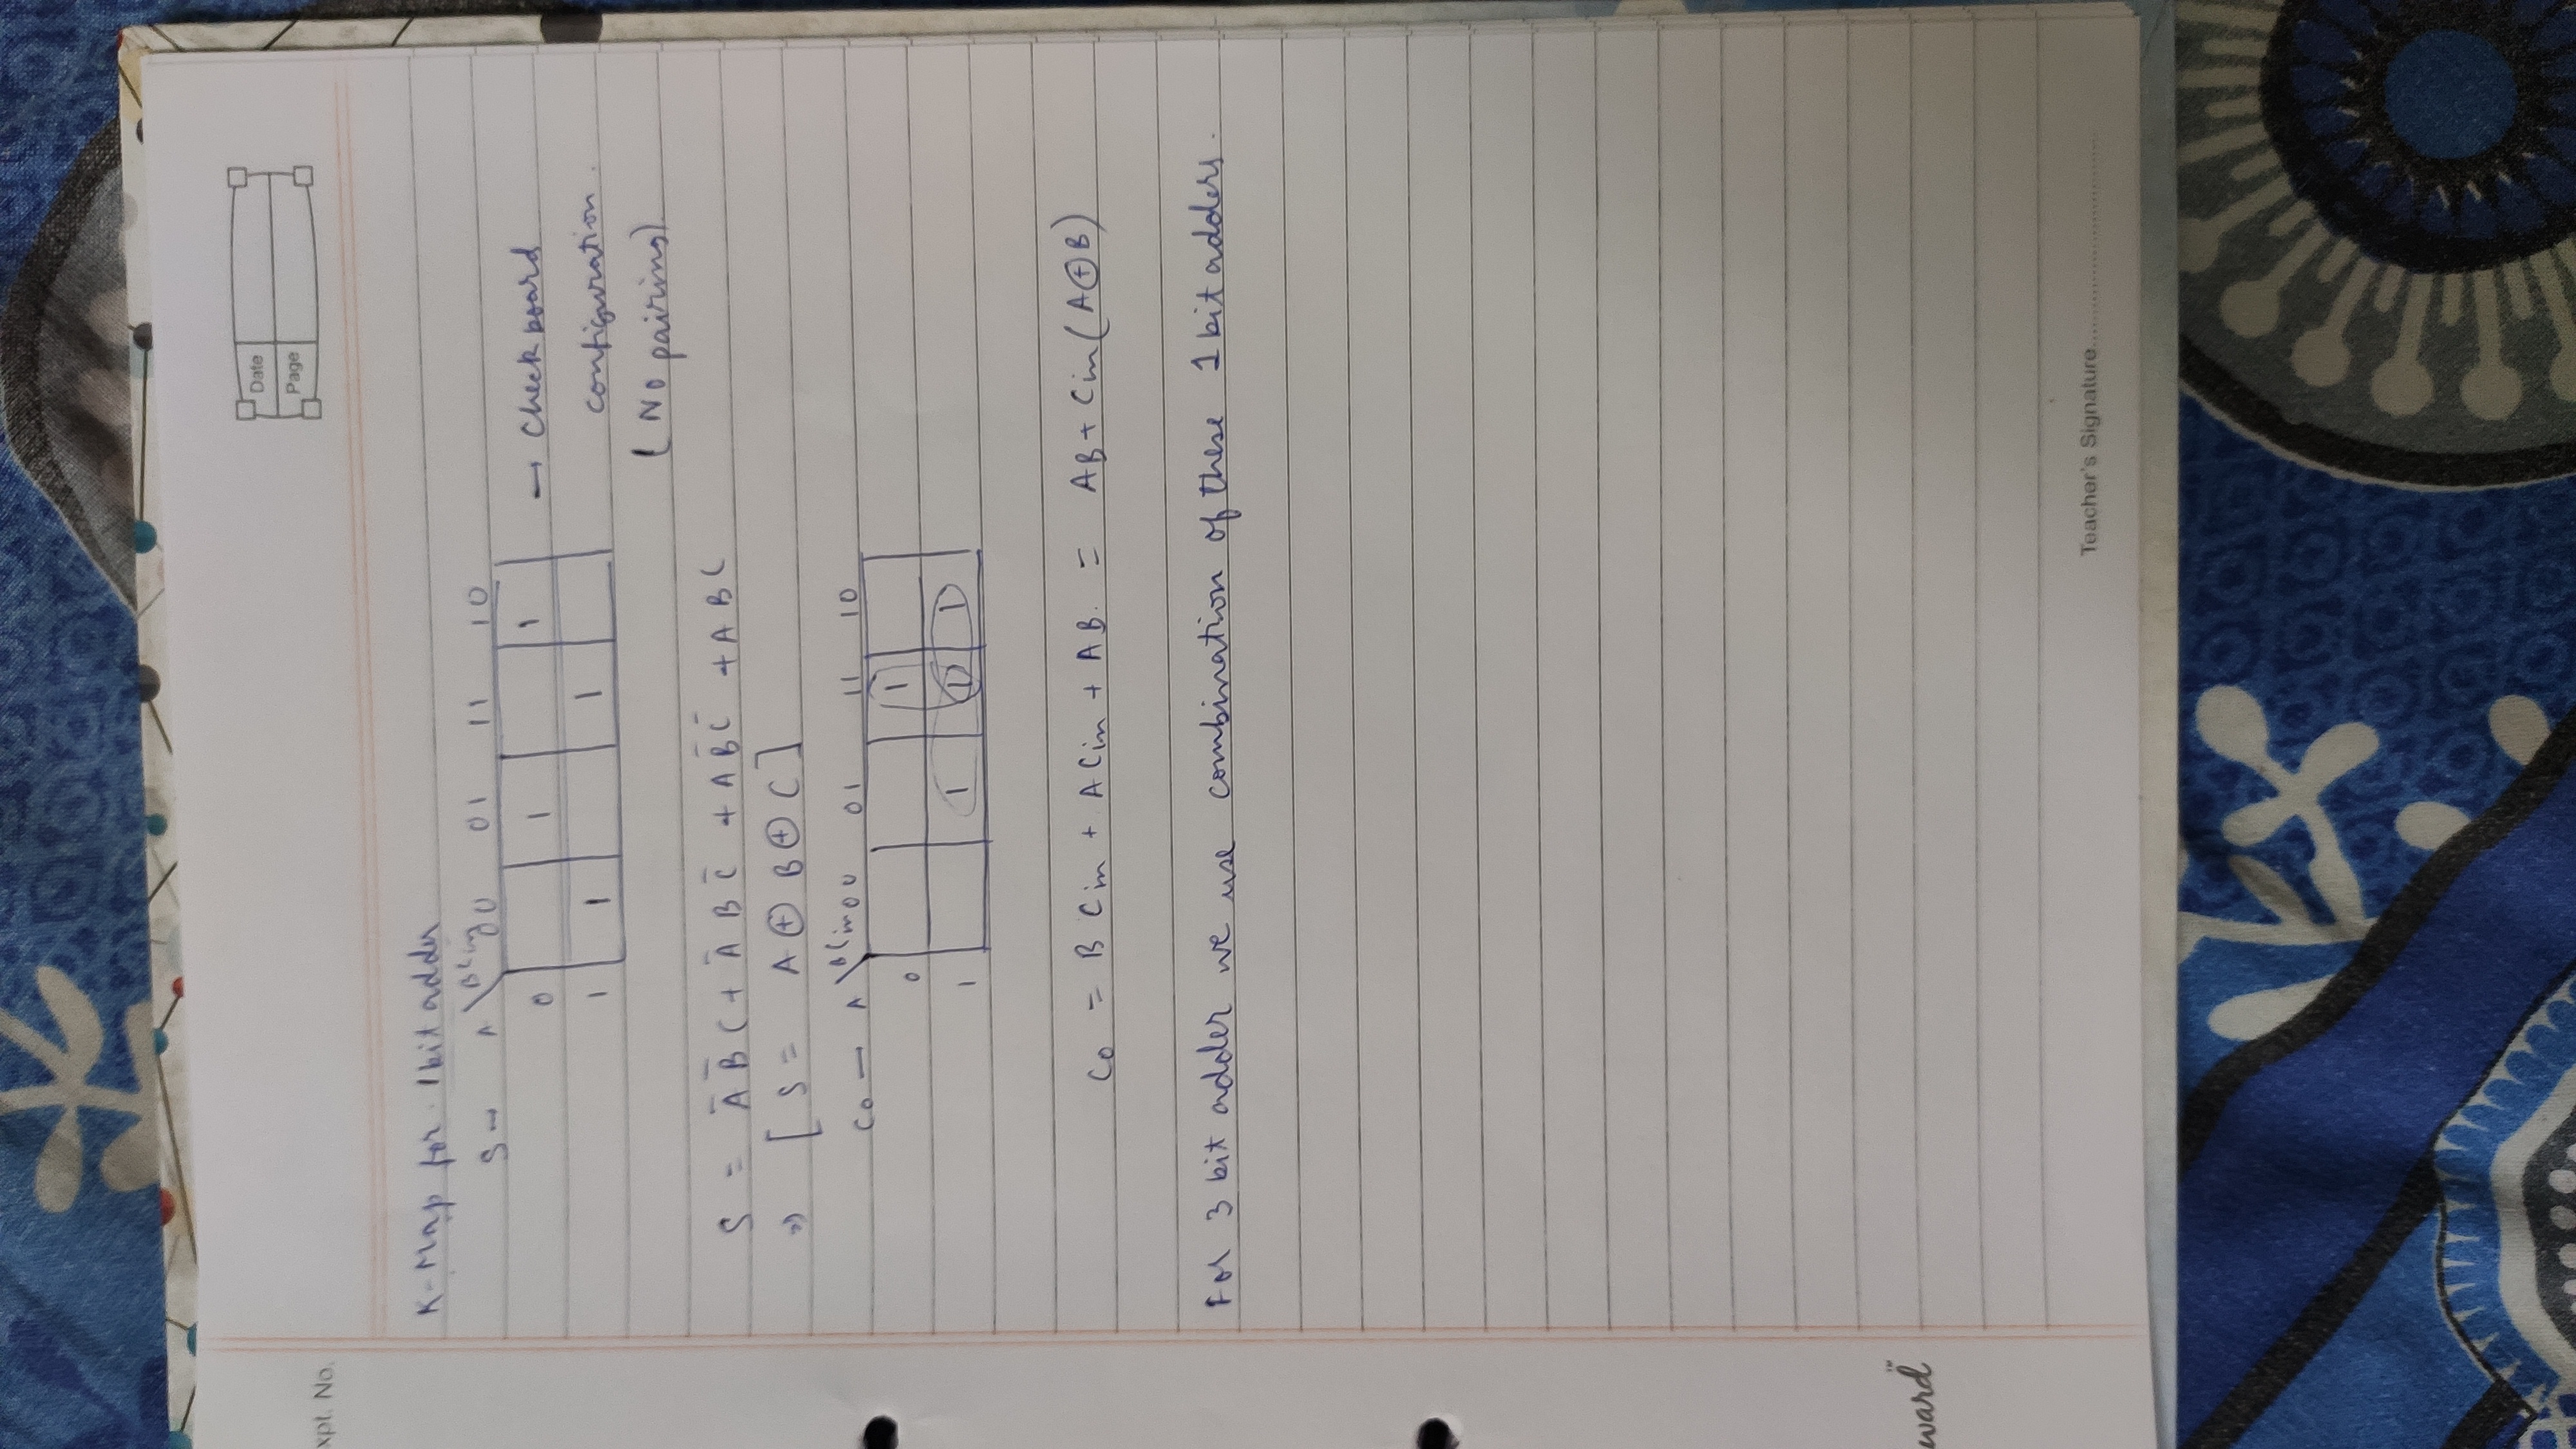 Date
Page
xpt. No.
K-Map for 1bit adder
S → A \ BCin 00 01 11 10
0 1 1 → Checkboard
1 1 1 configuration.
(No pairing)
S = A̅ B̅ C + A̅ B C̅ + A B̅ C̅ + A B C
⇒ [ S = A ⊕ B ⊕ C ]
Co → A \ BCin 00 01 11 10
0 1
1 1 1 1
Co = B Cin + A Cin + AB. = AB + Cin (A ⊕ B)
For 3 bit adder we use combination of these 1 bit adders.
ward
Teacher's Signature